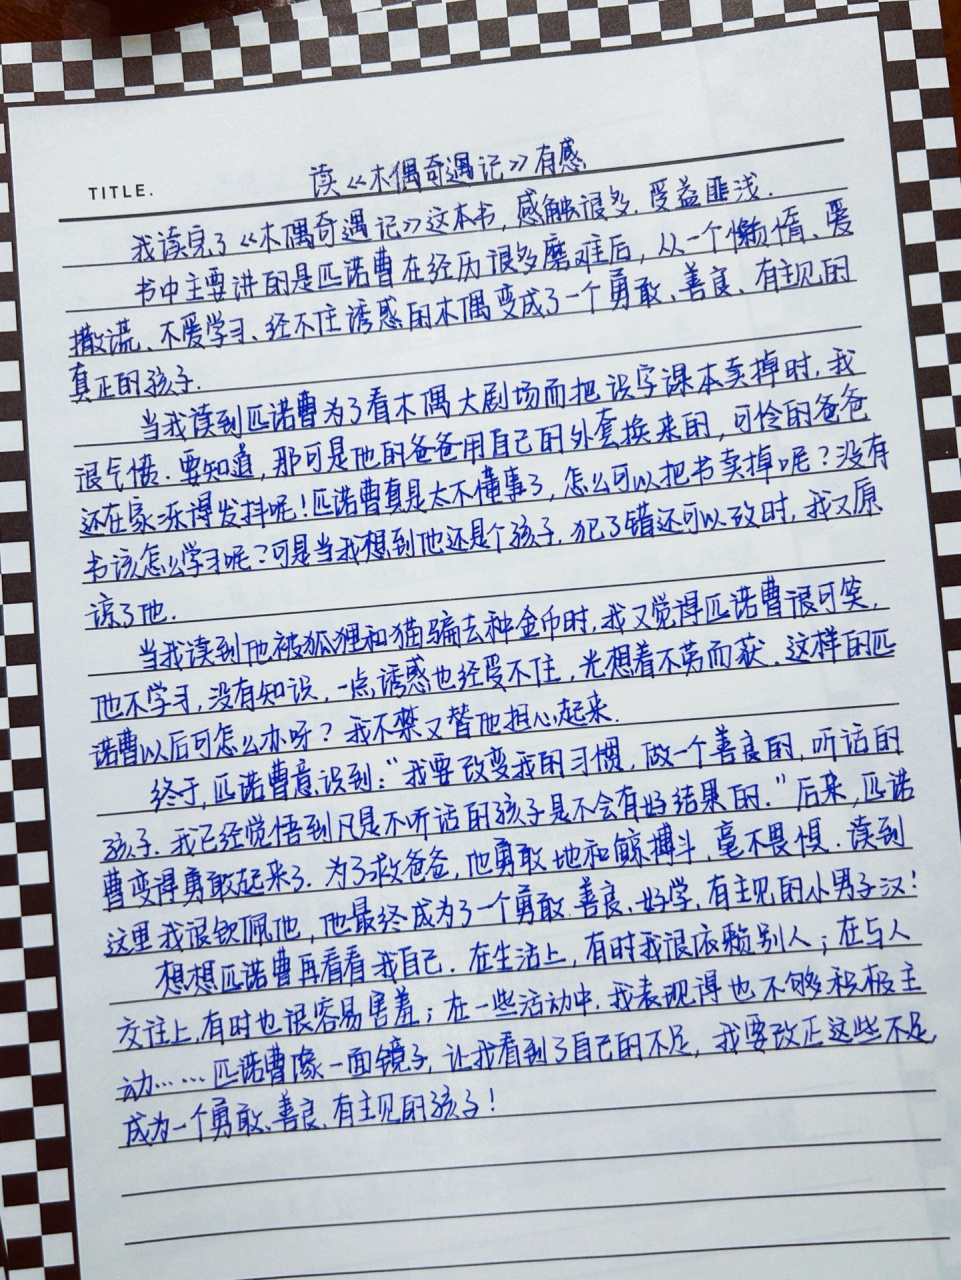 TITLE. 读《木偶奇遇记》有感
我读完了《木偶奇遇记》这本书，感触很多，受益匪浅.
书中主要讲的是匹诺曹在经历很多磨难后，从一个懒惰、爱
撒谎、不爱学习、经不住诱惑的木偶变成了一个勇敢、善良、有主见的
真正的孩子.
当我读到匹诺曹为了看木偶大剧场而把识字课本卖掉时，我
很气愤.要知道，那可是他的爸爸用自己的外套换来的，可怜的爸爸
还在家冻得发抖呢！匹诺曹真是太不懂事了，怎么可以把书卖掉呢？没有
书该怎么学习呢？可是当我想到他还是个孩子，犯了错还可以改时，我又原
谅了他.
当我读到他被狐狸和猫骗去种金币时，我又觉得匹诺曹很可笑，
他不学习，没有知识，一点诱惑也经受不住，光想着不劳而获，这样的匹
诺曹以后可怎么办呀？我不禁又替他担心起来.
终于，匹诺曹意识到：“我要改变我的习惯，做一个善良的，听话的
孩子.我已经觉悟到凡是不听话的孩子是不会有好结果的.”后来，匹诺
曹变得勇敢起来了.为了救爸爸，他勇敢地和鲸搏斗，毫不畏惧.读到
这里我很钦佩他，他最终成为了一个勇敢、善良、好学、有主见的小男子汉！
想想匹诺曹再看看我自己.在生活上，有时我很依赖别人；在与人
交往上，有时也很容易害羞；在一些活动中，我表现得也不够积极主
动……匹诺曹像一面镜子，让我看到了自己的不足，我要改正这些不足，
成为一个勇敢、善良、有主见的孩子！